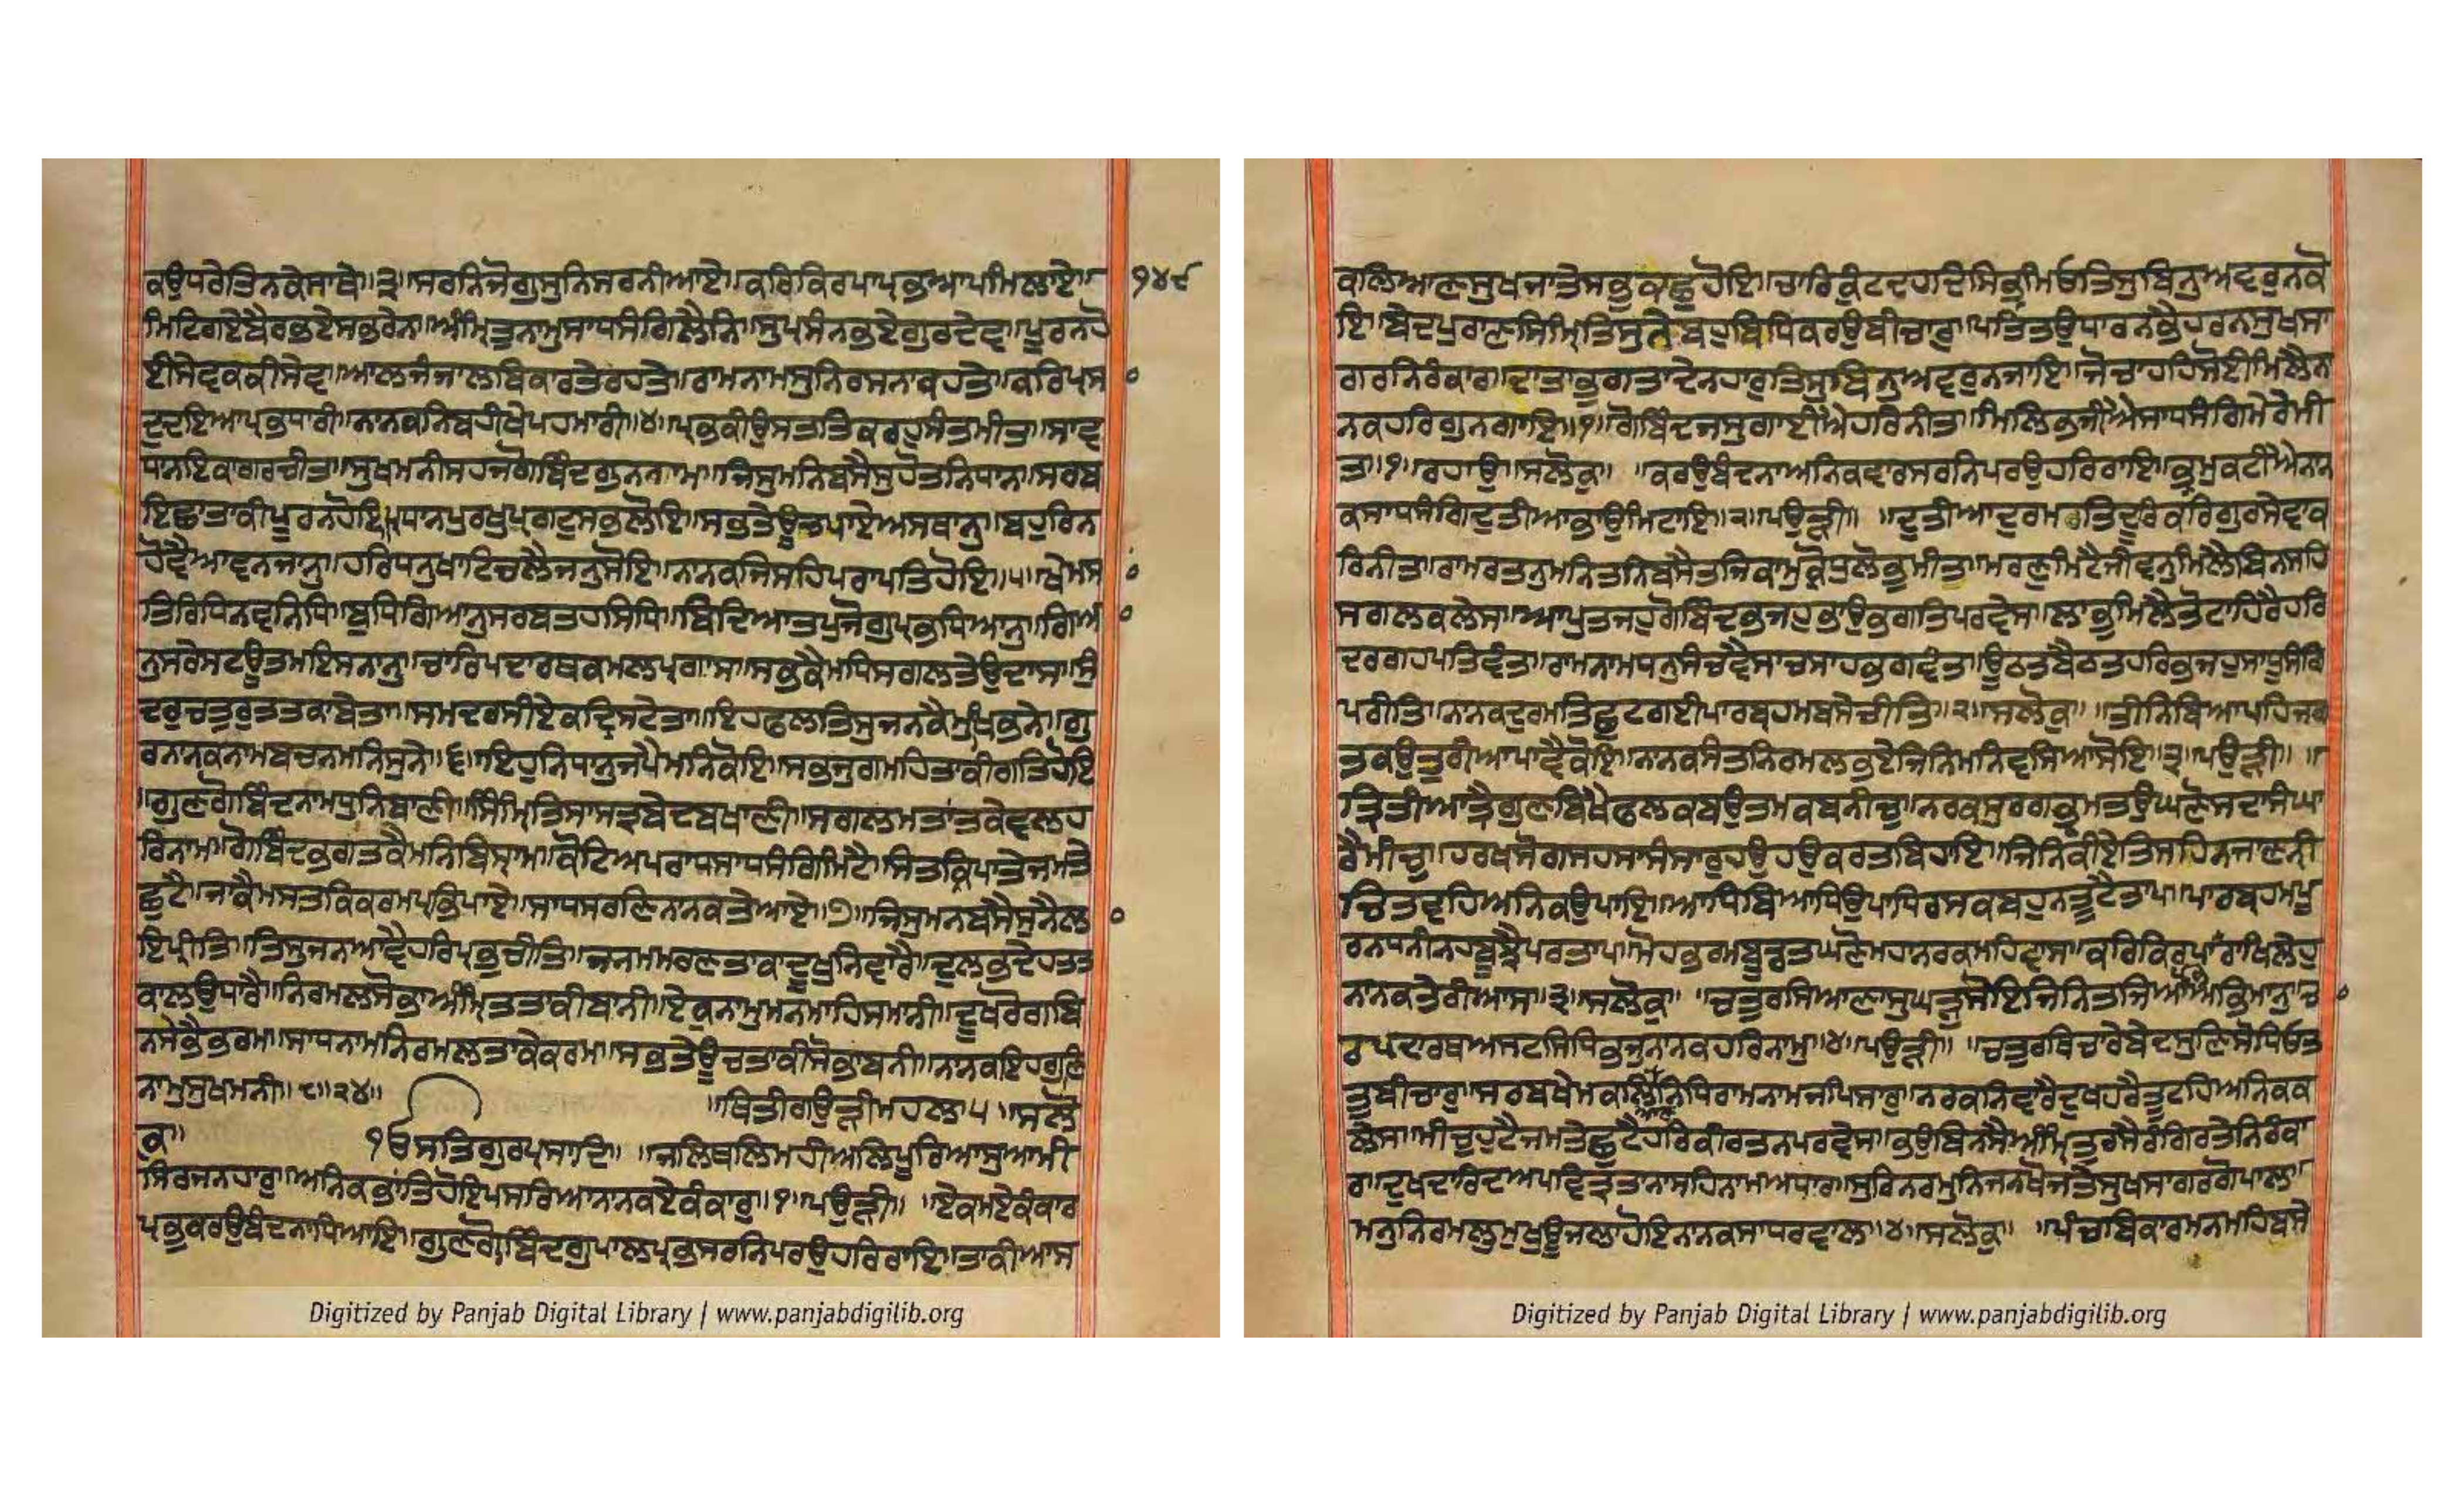 ਕਉਪਰੇਤਿਨਕੇਸਾਥੇ॥੩॥ਸਰਨਿਜੋਗੁਸੁਨਿਸਰਨੀਆਏ॥ਕਰਿਕਿਰਪਾਪ੍ਰਭਆਪਮਿਲਾਏ॥ ੧੪੯
ਮਿਟਿਗਏਬੈਰਭਏਸਭਰੇਨਾ॥ਅੰਮ੍ਰਿਤੁਨਾਮੁਸਾਧਸੰਗਿਲੈਨਿ॥ਸੁਪ੍ਰਸੰਨਭਏਗੁਰਦੇਵ॥ਪੂਰਨਹੋ
ਈਸੇਵਕਕੀਸੇਵ॥ਆਲਜੰਜਾਲਬਿਕਾਰਤੇਰਹਤੇ॥ਰਾਮਨਾਮਸੁਨਿਰਸਨਾਕਹਤੇ॥ਕਰਿਪ੍ਰਸ
ਦੁਦਇਆਪ੍ਰਭੁਧਾਰੀ॥ਨਾਨਕਨਿਬਹੀਖੇਪਹਮਾਰੀ॥੪॥ਪ੍ਰਭਕੀਉਸਤਤਿਕਰਹੁਸੰਤਮੀਤ॥ਸਾਵ
ਧਨਇਕਾਗਰਚੀਤ॥ਸੁਖਮਨੀਸਹਜਗੋਬਿੰਦਗੁਨਨਾਮ॥ਜਿਸੁਮਨਿਬਸੈਸੁਹੋਤਨਿਧਾਨ॥ਸਰਬ
ਇਛਾਤਾਕੀਪੂਰਨਹੋਇ॥ਪ੍ਰਧਾਨਪੁਰਖੁਪ੍ਰਗਟੁਸਭਲੋਇ॥ਸਭਤੇਊਚਪਾਏਅਸਥਾਨੁ॥ਬਹੁਰਿਨ
ਹੋਵੈਆਵਨਜਾਨੁ॥ਹਰਿਧਨੁਖਾਟਿਚਲੈਜਨੁਸੋਇ॥ਨਾਨਕਜਿਸਹਿਪਰਾਪਤਿਹੋਇ॥੫॥ਖੇਮਸ
ਤਿਰਿਧਿਨਵਨਿਧਿ॥ਬੁਧਿਗਿਆਨੁਸਰਬਤਹਸਿਧਿ॥ਬਿਦਿਆਤਪੁਜੋਗੁਪ੍ਰਭਧਿਆਨੁ॥ਗਿਆ
ਨੁਸਰੇਸਟਊਤਮਇਸਨਾਨੁ॥ਚਾਰਿਪਦਾਰਥਕਮਲਪ੍ਰਗਾਸ॥ਸਭਕੈਮਧਿਸਗਲਤੇਉਦਾਸ॥ਸੁੰ
ਦਰੁਚਤੁਰੁਤਤਕਾਬੇਤਾ॥ਸਮਦਰਸੀਏਕਦ੍ਰਿਸਟੇਤਾ॥ਇਹਫਲਤਿਸੁਜਨਕੈਮੁਖਿਭਨੇ॥ਗੁ
ਰਨਾਨਕਨਾਮਬਚਨਮਨਿਸੁਨੇ॥੬॥ਇਹੁਨਿਧਾਨੁਜਪੈਮਨਿਕੋਇ॥ਸਭਜੁਗਮਹਿਤਾਕੀਗਤਿਹੋਇ
॥ਗੁਣਗੋਬਿੰਦਨਾਮਧੁਨਿਬਾਣੀ॥ਸਿੰਮ੍ਰਿਤਿਸਾਸਤ੍ਰਬੇਦਬਖਾਣੀ॥ਸਗਲਮਤਾਂਤਕੇਵਲਹ
ਰਿਨਾਮ॥ਗੋਬਿੰਦਭਗਤਕੈਮਨਿਬਿਸ੍ਰਾਮ॥ਕੋਟਿਅਪਰਾਧਸਾਧਸੰਗਿਮਿਟੈ॥ਸੰਤਕ੍ਰਿਪਾਤੇਜਮਤੇ
ਛੁਟੈ॥ਜਾਕੈਮਸਤਕਿਕਰਮਪ੍ਰਭਿਪਾਏ॥ਸਾਧਸਰਣਿਨਾਨਕਤੇਆਏ॥੭॥ਜਿਸੁਮਨਬਸੈਸੁਨੈਲਾ
ਇਪ੍ਰੀਤਿ॥ਤਿਸੁਜਨਆਵੈਹਰਿਪ੍ਰਭੁਚੀਤਿ॥ਜਨਮਮਰਣਤਾਕਾਦੂਖੁਨਿਵਾਰੈ॥ਦੁਲਭਦੇਹਤਤ
ਕਾਲਉਧਾਰੈ॥ਨਿਰਮਲਸੋਭਾਅੰਮ੍ਰਿਤਤਾਕੀਬਾਨੀ॥ਏਕੁਨਾਮੁਮਨਮਾਹਿਸਮਾਨੀ॥ਦੂਖਰੋਗਬਿ
ਨਸੇਭੈਭਰਮ॥ਸਾਧਨਾਮਨਿਰਮਲਤਾਕੇਕਰਮ॥ਸਭਤੇਊਚਤਾਕੀਸੋਭਾਬਨੀ॥ਨਾਨਕਇਹਗੁਣਿ
ਨਾਮੁਸੁਖਮਨੀ॥੮॥੨੪॥ ॥ਥਿਤੀਗਉੜੀਮਹਲਾ੫॥ਸਲੋ
ਕੁ॥ ੴਸਤਿਗੁਰਪ੍ਰਸਾਦਿ॥ ॥ਜਲਿਥਲਿਮਹੀਅਲਿਪੂਰਿਆਸੁਆਮੀ
ਸਿਰਜਨਹਾਰੁ॥ਅਨਿਕਭਾਂਤਿਹੋਇਪਸਰਿਆਨਾਨਕਏਕੰਕਾਰੁ॥੧॥ਪਉੜੀ॥ ॥ਏਕਮਏਕੰਕਾਰ
ਪ੍ਰਭੁਕਰਉਬੰਦਨਾਧਿਆਇ॥ਗੁਣਗੋਬਿੰਦਗੁਪਾਲਪ੍ਰਭਸਰਨਿਪਰਉਹਰਿਰਾਇ॥ਤਾਕੀਆਸ
Digitized by Panjab Digital Library | www.panjabdigilib.org
ਕਲਿਆਣਸੁਖਜਾਤੇਸਭੁਕਛੁਹੋਇ॥ਚਾਰਿਕੁੰਟਦਹਦਿਸਿਭ੍ਰਮਿਓਤਿਸੁਬਿਨੁਅਵਰੁਨਕੋ
ਇ॥ਬੇਦਪੁਰਾਣਸਿਮ੍ਰਿਤਿਸੁਨੇਬਹੁਬਿਧਿਕਰਉਬੀਚਾਰੁ॥ਪਤਿਤਉਧਾਰਨਭੈਹਰਨਸੁਖਸਾ
ਗਰਨਿਰੰਕਾਰ॥ਦਾਤਾਭੁਗਤਾਦੇਨਹਾਰੁਤਿਸੁਬਿਨੁਅਵਰੁਨਜਾਇ॥ਜੋਚਾਹਹਿਸੋਈਮਿਲੈਨਾ
ਨਕਹਰਿਗੁਨਗਾਇ॥੧॥ਗੋਬਿੰਦਜਸੁਗਾਈਐਹਰਿਨੀਤ॥ਮਿਲਿਭਜੀਐਸਾਧਸੰਗਿਮੇਰੇਮੀ
ਤ॥੧॥ਰਹਾਉ॥ਸਲੋਕੁ॥ ॥ਕਰਉਬੰਦਨਾਅਨਿਕਵਾਰਸਰਨਿਪਰਉਹਰਿਰਾਇ॥ਭ੍ਰਮੁਕਟੀਐਨਾਨ
ਕਸਾਧਸੰਗਿਦੁਤੀਆਭਾਉਮਿਟਾਇ॥੨॥ਪਉੜੀ॥ ॥ਦੁਤੀਆਦੁਰਮਤਿਦੂਰਿਕਰਿਗੁਰਸੇਵਾਕ
ਰਿਨੀਤ॥ਰਾਮਰਤਨੁਮਨਿਤਨਿਬਸੈਤਜਿਕਾਮੁਕ੍ਰੋਧੁਲੋਭੁਮੀਤ॥ਮਰਣੁਮਿਟੈਜੀਵਨੁਮਿਲੈਬਿਨਸਹਿ
ਸਗਲਕਲੇਸ॥ਆਪੁਤਜਹੁਗੋਬਿੰਦਭਜਹੁਭਾਉਭਗਤਿਪਰਵੇਸ॥ਲਾਭੁਮਿਲੈਤੋਟਾਹਿਰੈਹਰਿ
ਦਰਗਹਪਤਿਵੰਤ॥ਰਾਮਨਾਮਧਨੁਸੰਚਵੈਸਾਚਸਾਹਭਗਵੰਤ॥ਊਠਤਬੈਠਤਹਰਿਭਜਹੁਸਾਧੂਸੰਗਿ
ਪਰੀਤਿ॥ਨਾਨਕਦੁਰਮਤਿਛੁਟਗਈਪਾਰਬ੍ਰਹਮਬਸੇਚੀਤਿ॥੨॥ਸਲੋਕੁ॥ ॥ਤੀਨਿਬਿਆਪਹਿਜਗ
ਤਕਉਤੁਰੀਆਪਾਵੈਕੋਇ॥ਨਾਨਕਸੰਤਨਿਰਮਲਭਏਜਿਨਿਮਨਿਵਸਿਆਸੋਇ॥੩॥ਪਉੜੀ॥ ॥
ਤ੍ਰਿਤੀਆਤ੍ਰੈਗੁਣਬਿਖੈਫਲਕਬਉਤਮਕਬਨੀਚੁ॥ਨਰਕਸੁਰਗਭ੍ਰਮਤਉਘਣੋਸਦਾਸੰਘਾ
ਰੈਮੀਚੁ॥ਹਰਖਸੋਗਸਹਸਾਸੰਸਾਰੁਹਉਹਉਕਰਤਬਿਹਾਇ॥ਜਿਨਿਕੀਏਤਿਸਹਿਨਜਾਣਨੀ
ਚਿਤਵਹਿਅਨਿਕਉਪਾਇ॥ਆਧਿਬਿਆਧਿਉਪਾਧਿਰਸਕਬਹੁਨਤੂਟੈਤਾਪ॥ਪਾਰਬ੍ਰਹਮਪੂ
ਰਨਧਨੀਨਹਬੂਝੈਪਰਤਾਪ॥ਮੋਹਭਰਮਬੂਡਤਘਣੋਮਹਾਨਰਕਮਹਿਵਾਸ॥ਕਰਿਕਿਰਪਾਰਾਖਿਲੇਹੁ
ਨਾਨਕਤੇਰੀਆਸ॥੩॥ਸਲੋਕੁ॥ ॥ਚਤੁਰਸਿਆਣਾਸੁਘੜੁਸੋਇਜਿਨਿਤਜਿਆਅਭਿਮਾਨੁ॥ਚਾ
ਰਪਦਾਰਥਅਸਟਸਿਧਿਭਜੁਨਾਨਕਹਰਿਨਾਮੁ॥੪॥ਪਉੜੀ॥ ॥ਚਤੁਰਥਿਚਾਰੇਬੇਦਸੁਣਿਸੋਧਿਓਤ
ਤੁਬੀਚਾਰੁ॥ਸਰਬਖੇਮਕਲਿਆਣਨਿਧਿਰਾਮਨਾਮਜਪਿਸਾਰੁ॥ਨਰਕਨਿਵਾਰੈਦੁਖਹਰੈਤੂਟਹਿਅਨਿਕਕ
ਲੇਸ॥ਮੀਚੁਹੁਟੈਜਮਤੇਛੁਟੈਹਰਿਕੀਰਤਨਪਰਵੇਸ॥ਭਉਬਿਨਸੈਅੰਮ੍ਰਿਤੁਰਸੈਰੰਗਿਰਤੇਨਿਰੰਕਾ
ਰ॥ਦੁਖਦਾਰਿਦਅਪਵਿਤ੍ਰਤਾਨਾਸਹਿਨਾਮਅਧਾਰ॥ਸੁਰਿਨਰਮੁਨਿਜਨਖੋਜਤੇਸੁਖਸਾਗਰਗੋਪਾਲ॥
ਮਨੁਨਿਰਮਲੁਮੁਖੁਊਜਲਾਹੋਇਨਾਨਕਸਾਧਰਵਾਲ॥੪॥ਸਲੋਕੁ॥ ॥ਪੰਚਬਿਕਾਰਮਨਮਹਿਬਸੇ
Digitized by Panjab Digital Library | www.panjabdigilib.org